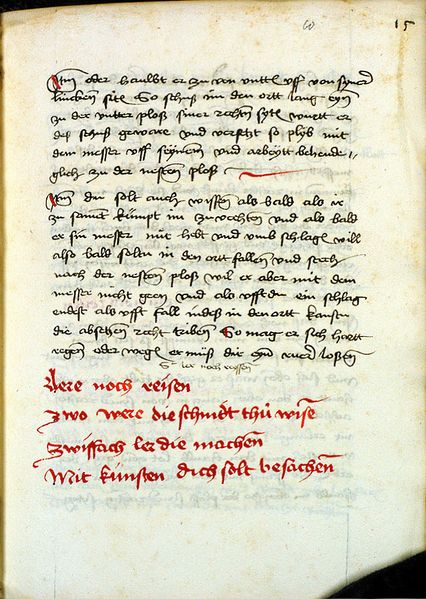 60 15
Itm oder haulbt er zu von untte uff von syner
lincken site So schuß im den ortt lang eyn
zu der untter ploß siner rechten syte wurtt er
deß schuß gewore und versetzt so plyb mit
dem messer uff seynem und arbeytt behende
glich zu der nesten ploß
Itm du solt auch wissen als bald als ir
zu samet kumpt im zu vechten und als bald
er sin messer mit hebt und umb schlage will
also bald soltu in den ortt fallen und stech
nach der nesten ploß wil er aber mit dem
messer nicht geen und als offt du ein schlag
endest als offt fall indeß in den ortt kanstu
die absetzen recht triben So mag er sich hartt
regen oder wege er muß dir
S ler noch reyssen
Lere noch reisen
Zwo were die schnidt thu wise
Zwiffach ler die machen
Mit kunsten dich solt besachen